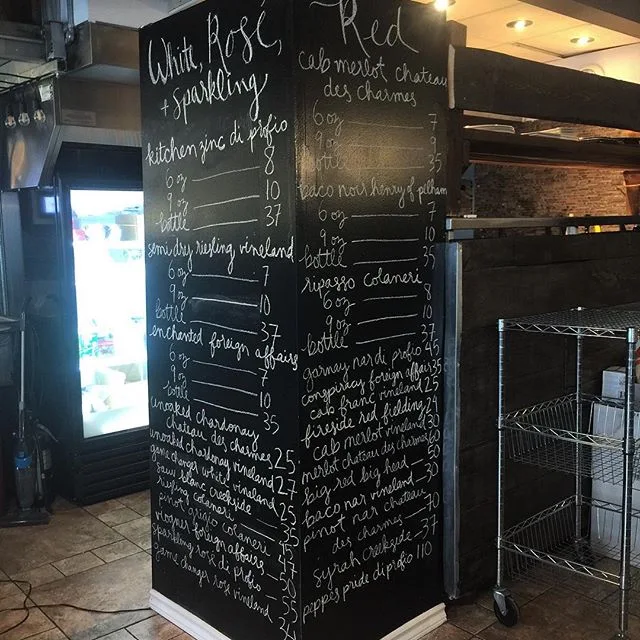 White, Rosé,
+ Sparkling
kitchen zinc di profio
6 oz 8
9 oz 10
bottle 37
semi dry riesling vineland
6 oz 7
9 oz 10
bottle 37
enchanted foreign affair
6 oz 7
9 oz 10
bottle 35
unoaked chardonay
chateau des charmes 25
unoaked chardonay vineland 27
game changer white vineland 25
sauv blanc creekside
riesling colaneri
pinot grigio colaneri
viognier foreign affair
sparkling rosé di profio
game changer rosé vineland
Red
cab merlot chateau
des charmes
6 oz 7
9 oz 9
bottle 35
baco noir henry of pelham
6 oz 7
9 oz 10
bottle 35
ripasso colaneri
6 oz 8
9 oz 10
bottle 37
gamay noir di profio 45
conspiracy foreign affair 35
cab franc vineland 25
fireside red fielding 29
cab merlot vineland 30
merlot chateau des charmes 60
big red big head 50
baco noir vineland 30
pinot noir chateau 70
des charmes
syrah creekside 37
peppes pride di profio 110